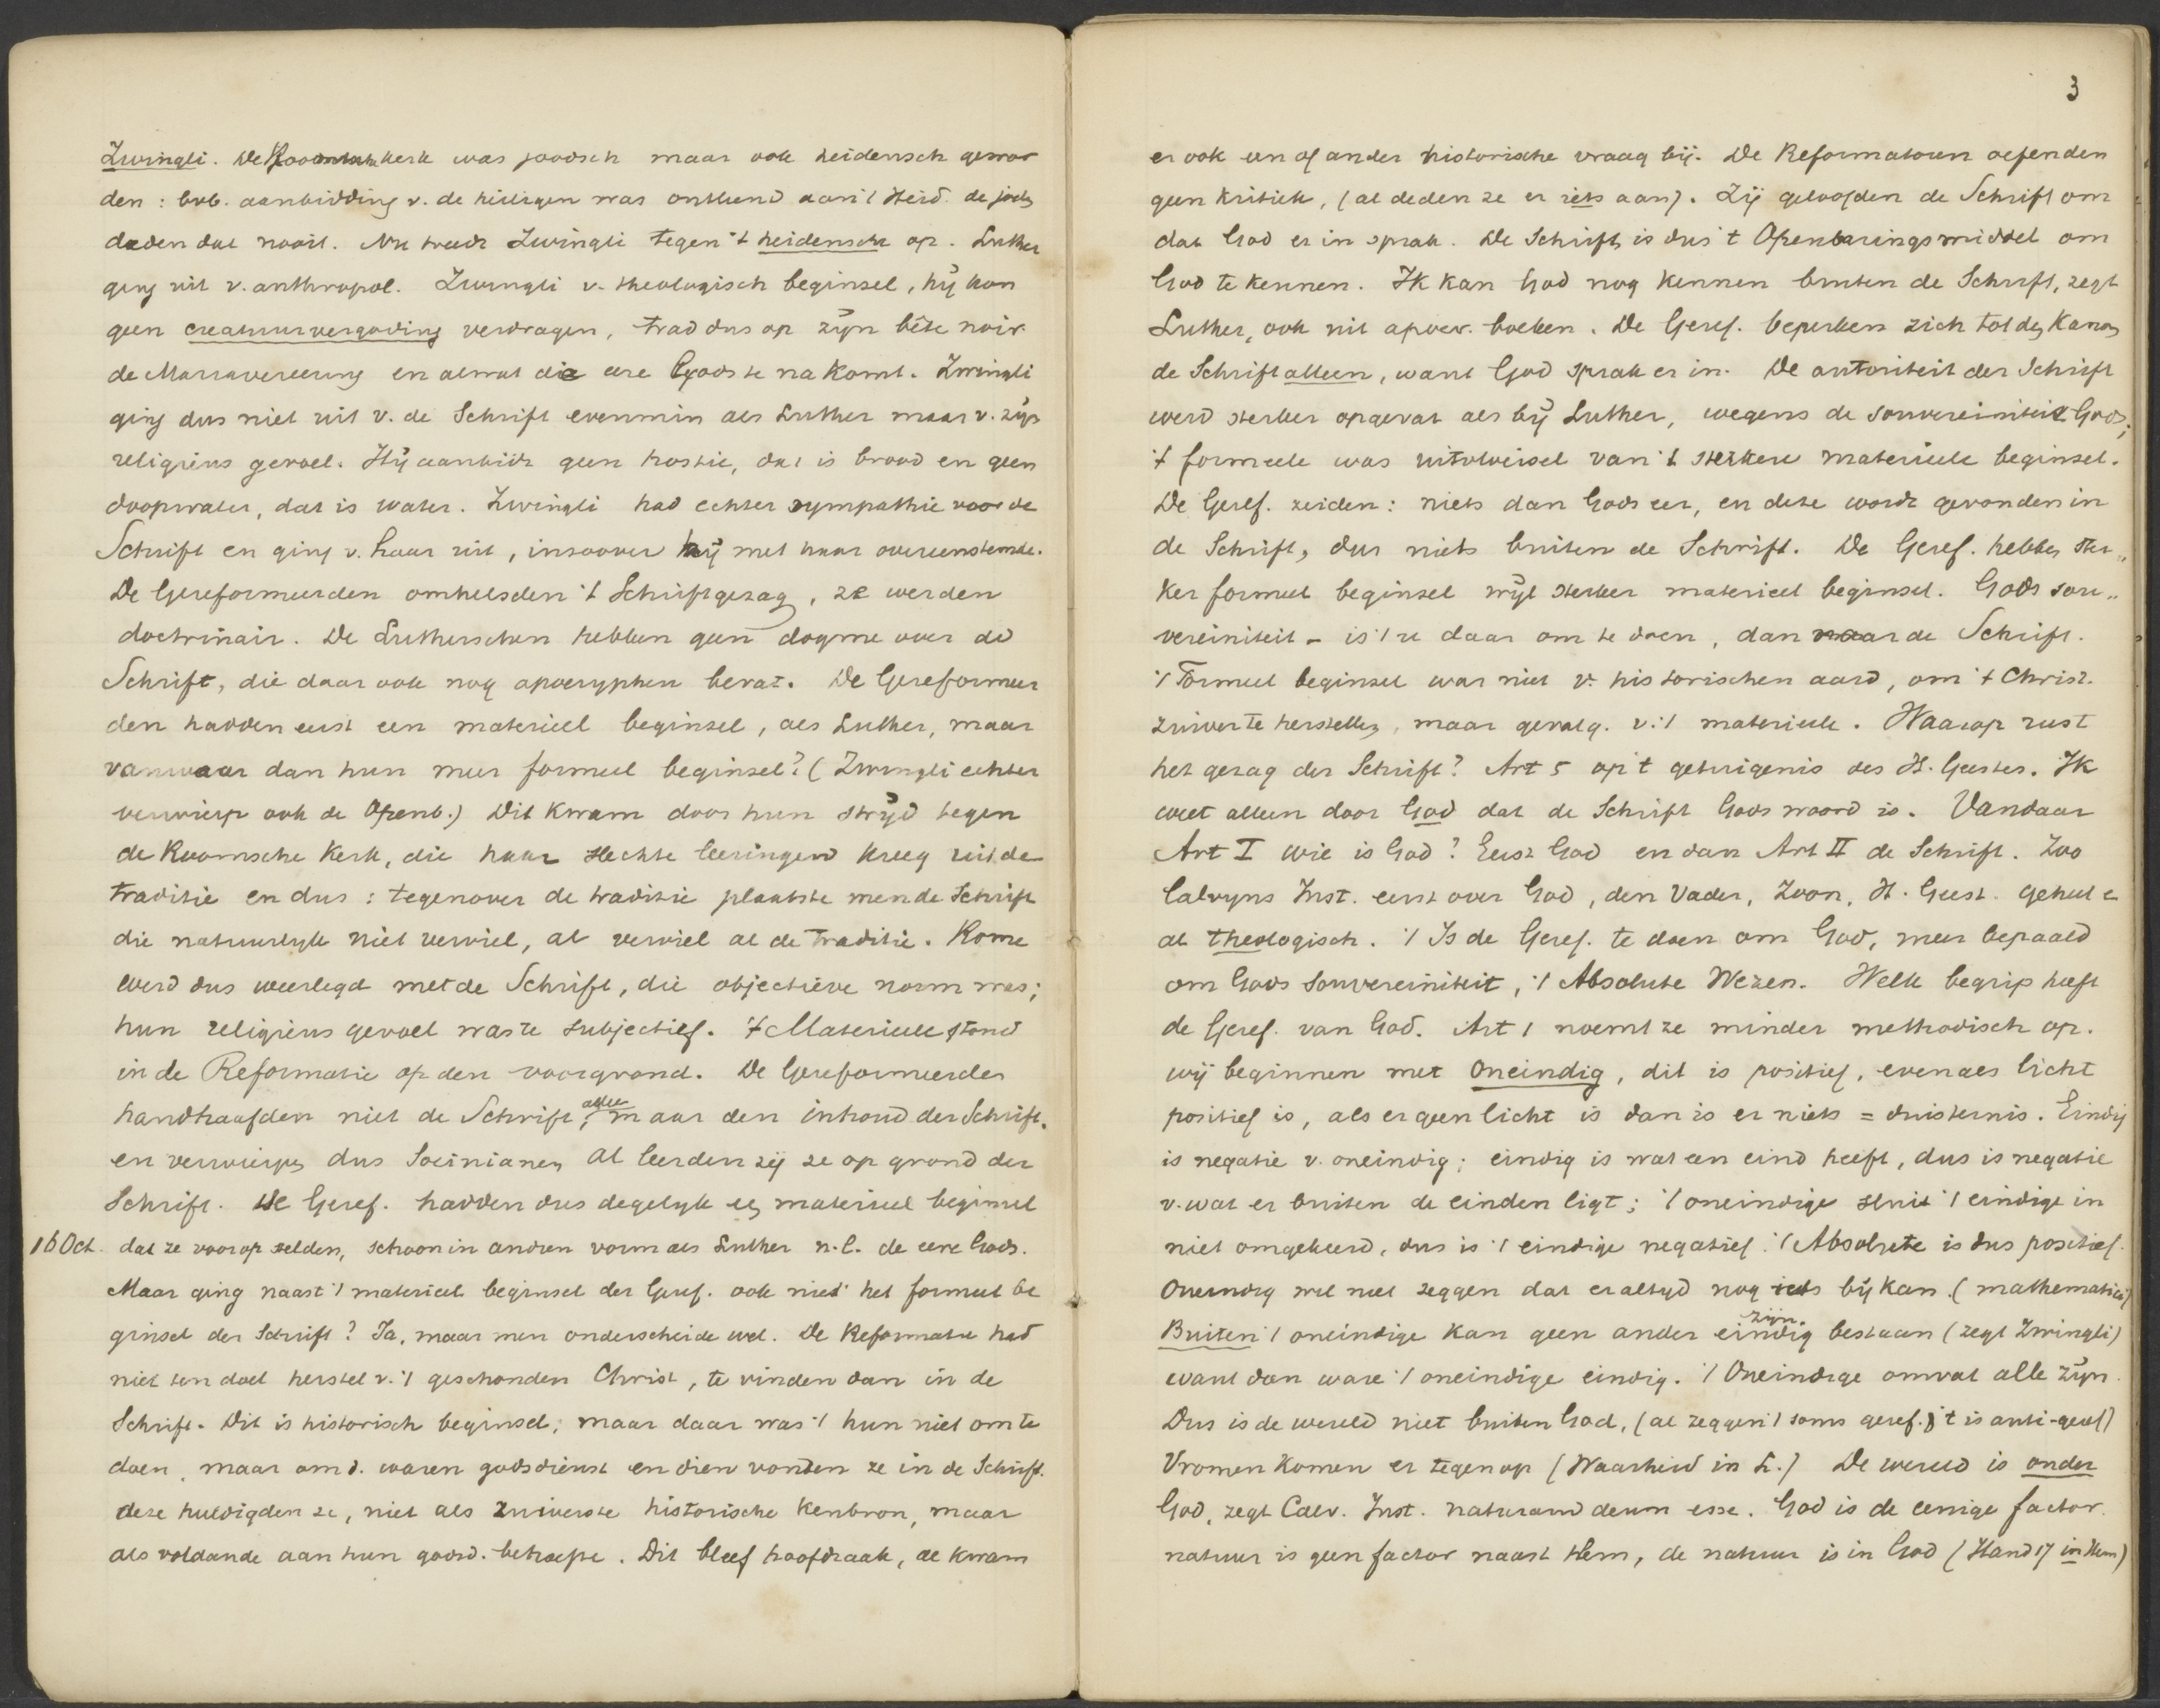 Zwingli. De Roomsche kerk was joodsch maar ook heidensch gewor
den: bvb. aanbidding v. de heiligen was ontleend aan 't Heid. de joden
deden dat nooit. Nu treedt Zwingli tegen 't heidensche op. Luther
ging uit v. anthropol. Zwingli v. theologisch beginsel, hij kon
geen creatuurvergoding verdragen, trad dus op zijn bête noir
de Mariavereering en alwat die eere Gods te na komt. Zwingli
ging dus niet uit v. de Schrift evenmin als Luther maar v. zijn
religieus gevoel. Hij aanbidt geen hostie, dat is brood en geen
doopwater, dat is water. Zwingli had echter sympathie voor de
Schrift en ging v. haar uit, insoover hij met haar overeenstemde.
De Gereformeerden omhelsden 't Schriftgezag, ze werden
doctrinair. De Lutherschen hebben geen dogme over de
Schrift, die daar ook nog apocryphen bevat. De Gereformeer
den hadden eerst een materieel beginsel, als Luther, maar
vanwaar dan hun meer formeel beginsel? (Zwingli echter
verwierp ook de Openb.) Dit kwam door hun strijd tegen
de Roomsche Kerk, die haar slechte leeringen kreeg uit de
traditie en dus: tegenover de traditie plaatste men de Schrift
die natuurlyk niet verviel, al verviel al de traditie. Rome
werd dus weerlegd met de Schrift, die objectieve norm was;
hun religieus gevoel was te subjectief. 't Materieele stond
in de Reformatie op den voorgrond. De Gereformeerden
handhaafden niet de Schrift, alleen maar den inhoud der Schrift.
en verwierpen dus Socinianen al leerden zij ze op grond der
Schrift. De Geref. hadden dus degelyk een materieel beginsel
16 Oct. dat ze voorop stelden, schoon in andren vorm als Luther n.l. de eere Gods.
Maar ging naast 't materieel beginsel der Geref. ook niet het formeel be
ginsel der Schrift? Ja, maar men onderscheide wel. De Reformatie had
niet ten doel herstel v. 't geschonden Christ, te vinden dan in de
Schrift. Dit is historisch beginsel, maar daar was 't hun niet om te
doen, maar om d. waren godsdienst en dien vonden ze in de Schrift.
deze huldigden ze, niet als zuiverste historische kenbron, maar
als voldoende aan hun godsd. behoefte. Dit bleef hoofdzaak, al kwam
3
er ook een of ander historische vraag bij. De Reformatoren oefenden
geen kritiek, (al deden ze er iets aan). Zij geloofden de Schrift om
dat God er in sprak. De Schrift is dus 't Openbaringsmiddel om
God te kennen. Ik kan God nog kennen buiten de Schrift, zegt
Luther, ook uit apocr. boeken. De Geref. beperken zich tot den Kanon
de Schrift alleen, want God sprak er in. De autoriteit der Schrift
werd sterker opgevat als bij Luther, wegens de souvereiniteit Gods;
't formeele was uitvloeisel van 't sterkere materieele beginsel.
De Geref. zeiden: niets dan Gods eer, en deze wordt gevonden in
de Schrift, dus niets buiten de Schrift. De Geref. hebben ster„
ker formeel beginsel wijl sterker materieel beginsel. Gods sou„
vereiniteit - is 't ze daar om te doen, dan naar de Schrift.
't Formeel beginsel was niet v. historischen aard, om 't Christ.
zuiver te herstellen, maar gevolg. v. 't materieele. Waarop rust
het gezag der Schrift? Art 5 op 't getuigenis des H. Geestes. Ik
weet alleen door God dat de Schrift Gods woord is. Vandaar
Art I wie is God? Eerst God en dan Art II de Schrift. Zoo
Calvyns Inst. eerst over God, den Vader, Zoon, H. Geest. geheel e
al theologisch. 't Is de Geref. te doen om God, meer bepaald
om Gods souvereiniteit, 't Absolute Wezen. Welk begrip heeft
de Geref. van God. Art 1 noemt ze minder methodisch op.
wij beginnen met oneindig, dit is positief, evenals licht
positief is, als er geen licht is dan is er niets = duisternis. Eindig
is negatie v. oneindig; eindig is wat een eind heeft, dus is negatie
v. wat er buiten de einden ligt; 't oneindige sluit 't eindige in
niet omgekeerd, dus is 't eindige negatief. 't Absolute is dus positief.
Oneindig wil niet zeggen dat er altyd nog iets bij kan (mathematisch)
Buiten 't oneindige kan geen ander eindig zijn bestaan (zegt Zwingli)
want dan ware 't oneindige eindig. 't Oneindige omvat alle zijn.
Dus is de wereld niet buiten God, (al zeggen 't soms geref. 't is anti-geref)
Vromen komen er tegenop (Waarheid in L.) De wereld is onder
God, zegt Calv. Inst. naturam deum esse. God is de eenige factor.
natuur is geen factor naast Hem, de natuur is in God (Hand 17 in Hem)